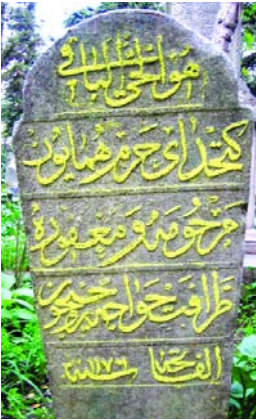 هو الحي الباقي
كتخداى حرم همايون
مرحومه و مغفوره
ظرافت خواجه روحيچون
الفاتحه سنه ١١٧٦